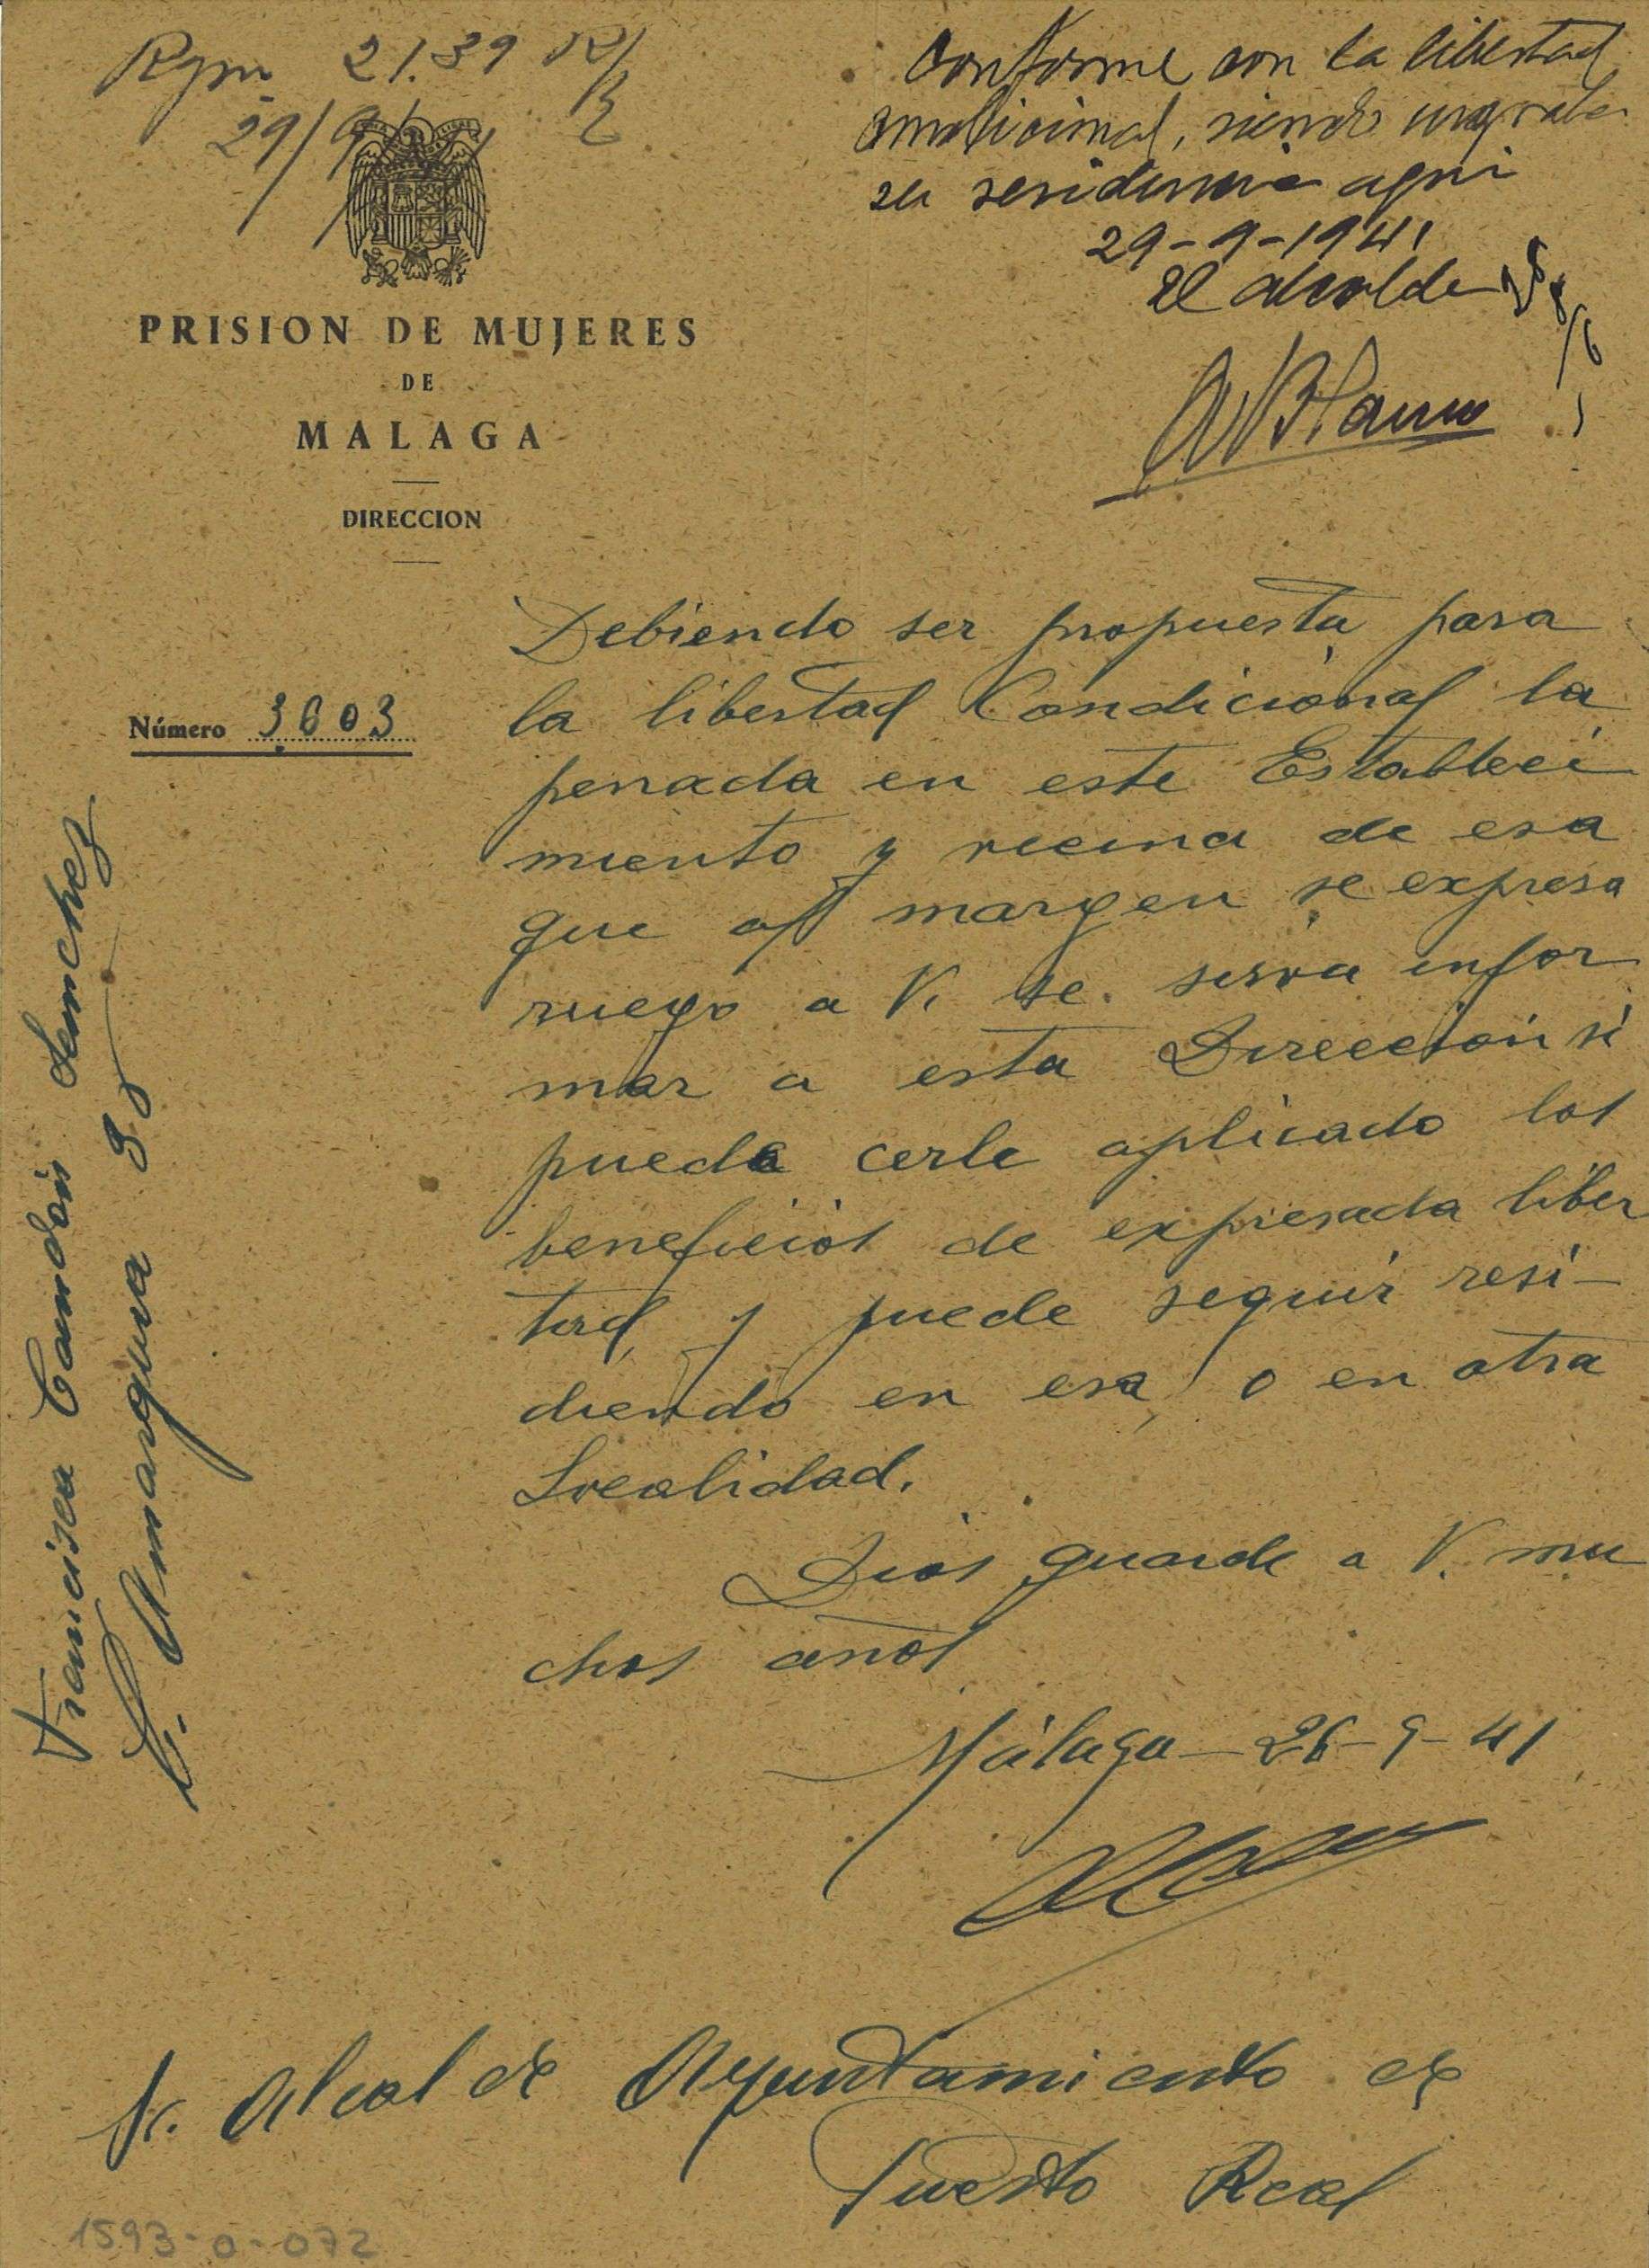 21.39
29/9/41
Conforme con la libertad
condicional, siendo
su residencia aqui
29-9-1941
El alcalde
Blanco
PRISION DE MUJERES
DE
MALAGA
DIRECCION
Número 3.603
Francisca Camdón Sanchez
C. Amargura 35
Debiendo ser propuesta para
la libertad Condicional la
penada en este Estableci
miento y vecina de esa
que al margen se expresa
ruego a V. se sirva infor
mar a esta Dirección si
puede cerle aplicado los
beneficios de expresada liber
tad, y puede seguir resi-
diendo en esa, o en otra
Localidad.
Dios guarde a V. mu
chos años
Málaga - 26-9-41
Sr. Alcalde Ayuntamiento de
Puerto Real
1593-0-072